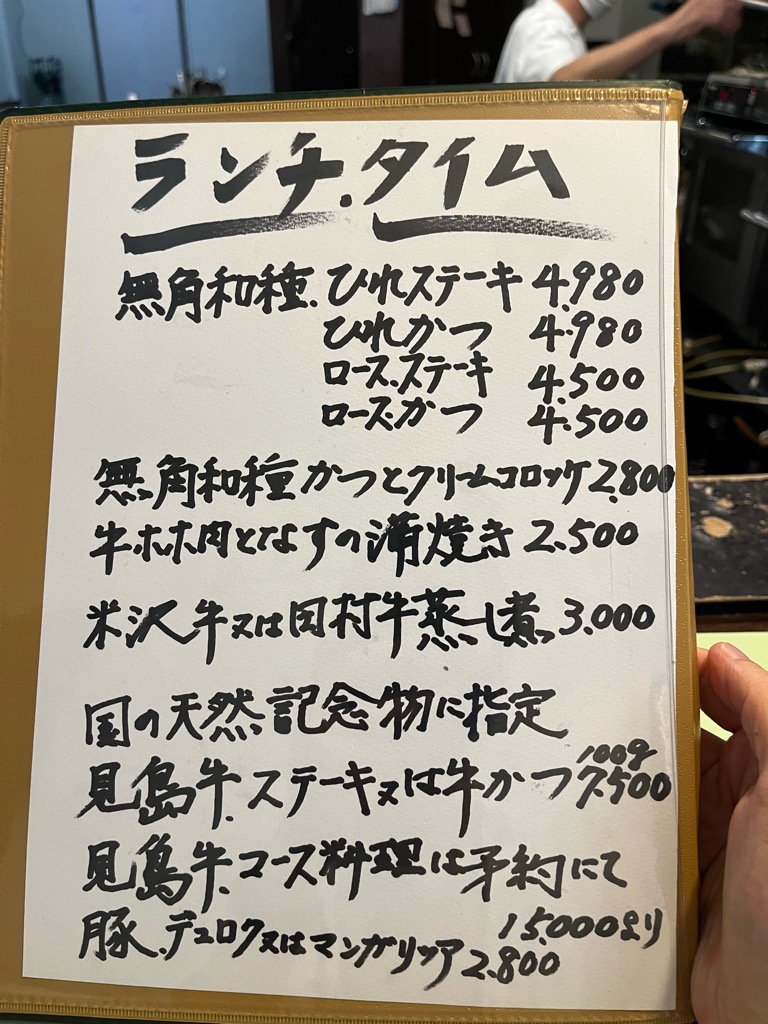 ランチ.タイム
無角和種.ひれステーキ 4.980
ひれかつ 4.980
ロース.ステーキ 4.500
ロース.かつ 4.500
無角和種かつとクリームコロッケ2.800
牛ホホ肉となすの蒲焼き 2.500
米沢牛又は田村牛蒸し煮 3.000
国の天然記念物に指定
100g
見島牛.ステーキ又は牛かつ 7.500
見島牛.コース料理は予約にて
15.000より
豚.デュロク又はマンガリッツア 2.800